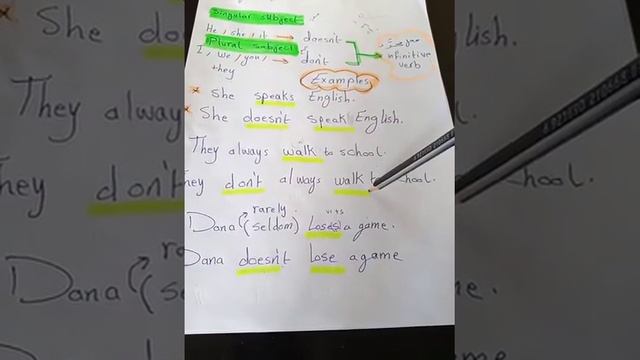 Singular subject
He, she, it → doesn't
Plural Subject
I, we / you / → don't
they
infinitive
verb
Examples
She speaks English.
She doesn't speak English.
They always walk to school.
They don't always walk to school.
rarely
v+s
Dana (seldom) Loses a game.
Dana doesn't lose a game